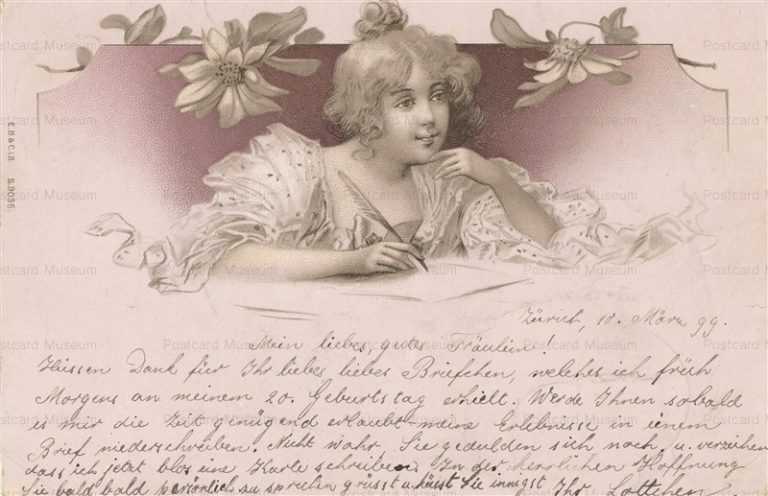 E.B.&C.i.B. S.9036.
Zürich, 10. März 99.
Mein liebes, gutes Fräulein!
Heissen Dank für Ihr liebes liebes Briefchen, welches ich früh
Morgens an meinem 20. Geburtstag erhielt. Werde Ihnen sobald
es mir die Zeit genügend erlaubt meine Erlebnisse in einem
Brief niederschreiben. Nicht wahr, Sie gedulden sich noch, u. verzeihen
dass ich jetzt blos eine Karte schreibe. In der herrlichen Hoffnung
Sie bald bald persönlich zu sprechen grüsst u. küsst Sie innigst Ihr Lottchen
Postcard Museum